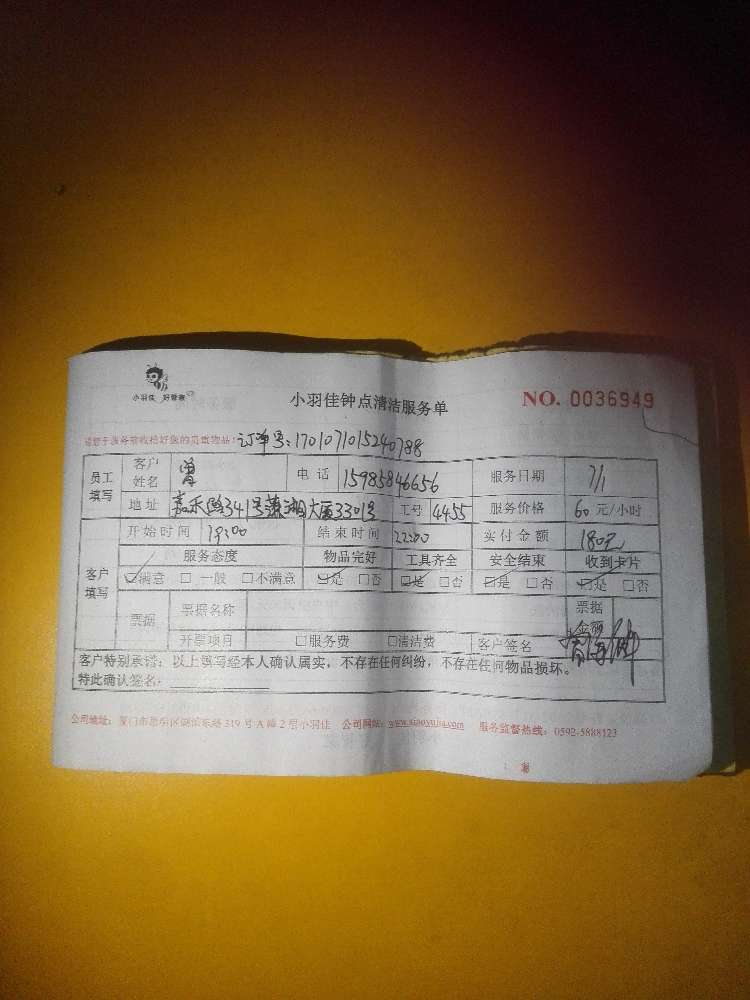 小羽佳 好管家
小羽佳钟点清洁服务单 NO. 0036949
请暂于服务前收拾好您的贵重物品: 订单号:1701071015240788
员工填写 客户姓名 曾 电话 15985846656 服务日期 7/1
地址 嘉禾路341号 大厦3301号 工号 4455 服务价格 60 元/小时
开始时间 19:00 结束时间 22:00 实付金额 180元
客户填写 服务态度 物品完好 工具齐全 安全结束 收到卡片
☑满意 □ 一般 □不满意 ☑是 □否 ☑是 □否 ☑是 □否 ☑是 □否
票据 票据名称 票据金额
开票项目 □服务费 □清洁费 客户签名
客户特别承诺:以上填写经本人确认属实,不存在任何纠纷,不存在任何物品损坏。
特此确认签名:
公司地址:厦门市思明区 东路 319 号 A 幢 2 层小羽佳 公司网站:www.xiaoyujia.com 服务监督热线:0592-5888123